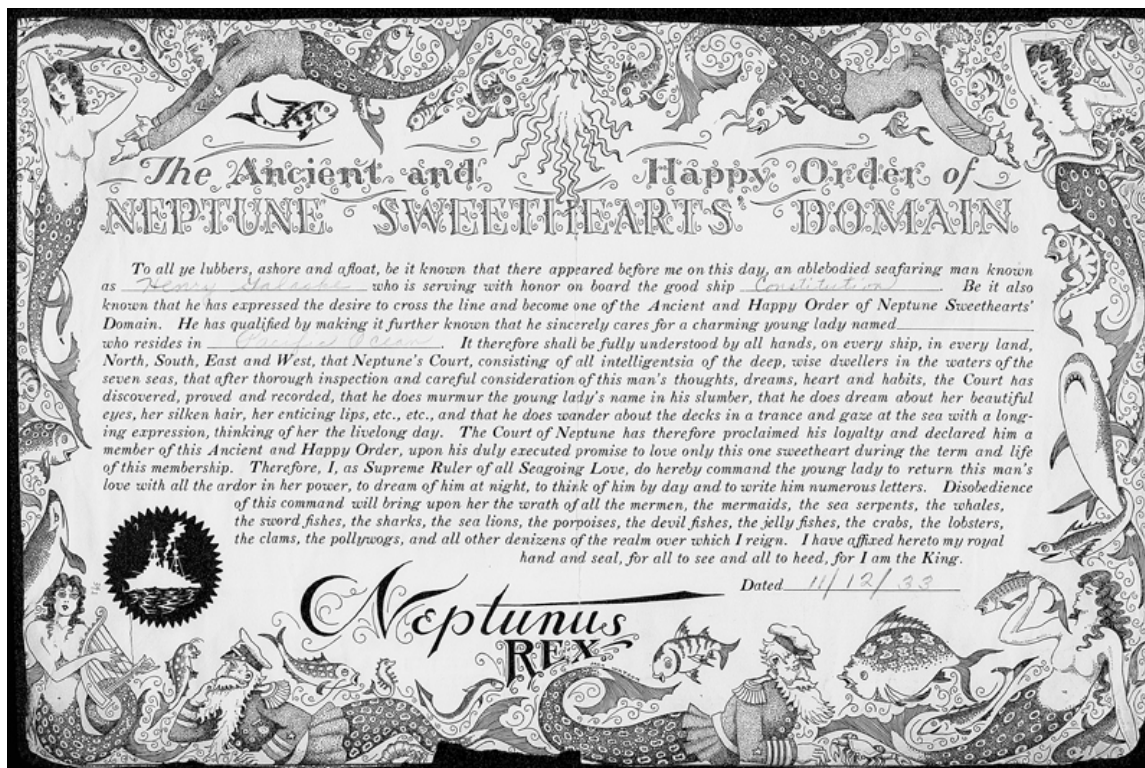 The Ancient and Happy Order of
NEPTUNE SWEETHEARTS' DOMAIN
To all ye lubbers, ashore and afloat, be it known that there appeared before me on this day, an ablebodied seafaring man known
as Henry who is serving with honor on board the good ship Constitution. Be it also
known that he has expressed the desire to cross the line and become one of the Ancient and Happy Order of Neptune Sweethearts'
Domain. He has qualified by making it further known that he sincerely cares for a charming young lady named
who resides in Pacific Ocean. It therefore shall be fully understood by all hands, on every ship, in every land,
North, South, East and West, that Neptune's Court, consisting of all intelligentsia of the deep, wise dwellers in the waters of the
seven seas, that after thorough inspection and careful consideration of this man's thoughts, dreams, heart and habits, the Court has
discovered, proved and recorded, that he does murmur the young lady's name in his slumber, that he does dream about her beautiful
eyes, her silken hair, her enticing lips, etc., etc., and that he does wander about the decks in a trance and gaze at the sea with a long-
ing expression, thinking of her the livelong day. The Court of Neptune has therefore proclaimed his loyalty and declared him a
member of this Ancient and Happy Order, upon his duly executed promise to love only this one sweetheart during the term and life
of this membership. Therefore, I, as Supreme Ruler of all Seagoing Love, do hereby command the young lady to return this man's
love with all the ardor in her power, to dream of him at night, to think of him by day and to write him numerous letters. Disobedience
of this command will bring upon her the wrath of all the mermen, the mermaids, the sea serpents, the whales,
the sword fishes, the sharks, the sea lions, the porpoises, the devil fishes, the jelly fishes, the crabs, the lobsters,
the clams, the pollywogs, and all other denizens of the realm over which I reign. I have affixed hereto my royal
hand and seal, for all to see and all to heed, for I am the King.
Dated 11/12/33
Neptunus
REX